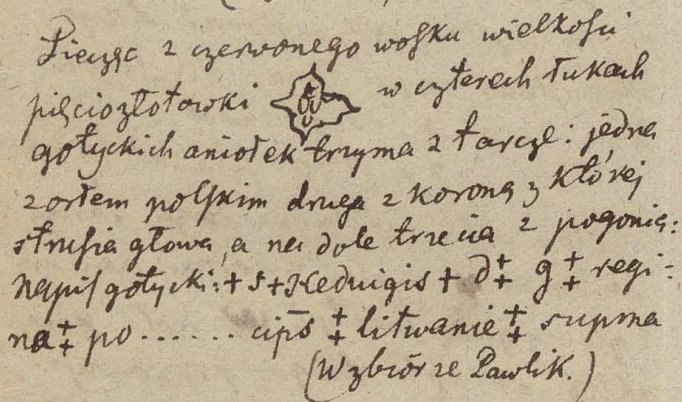 Pieczęć z czerwonego wosku wielkości
pięciozłotowski w czterech łukach
gotyckich aniołek trzyma 2 tarcze: jedna
z orłem polskim druga z koroną z której
strusia głowa, a na dole trzecia z pogonią:
napis gotycki: + s + Hedvigis + d ‡ g ‡ regi-
na ‡ po ...... cip̄s ‡ litwanie ‡ supma
(W zbiorze Pawlik.)